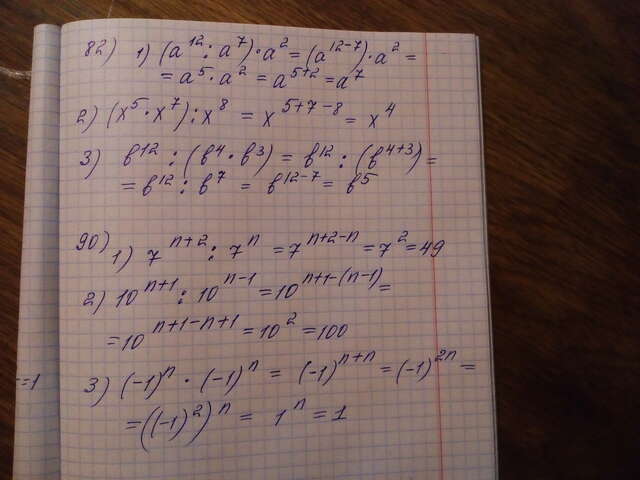 82) 1) (a¹² : a⁷) · a² = (a¹²⁻⁷) · a² =
= a⁵ · a² = a⁵⁺² = a⁷
2) (x⁵ · x⁷) : x⁸ = x⁵⁺⁷⁻⁸ = x⁴
3) в¹² : (в⁴ · в³) = в¹² : (в⁴⁺³) =
= в¹² : в⁷ = в¹²⁻⁷ = в⁵
90)
1) 7ⁿ⁺² : 7ⁿ = 7ⁿ⁺²⁻ⁿ = 7² = 49
2) 10ⁿ⁺¹ : 10ⁿ⁻¹ = 10ⁿ⁺¹⁻⁽ⁿ⁻¹⁾ =
= 10ⁿ⁺¹⁻ⁿ⁺¹ = 10² = 100
3) (-1)ⁿ · (-1)ⁿ = (-1)ⁿ⁺ⁿ = (-1)²ⁿ =
= ((-1)²)ⁿ = 1ⁿ = 1
=1